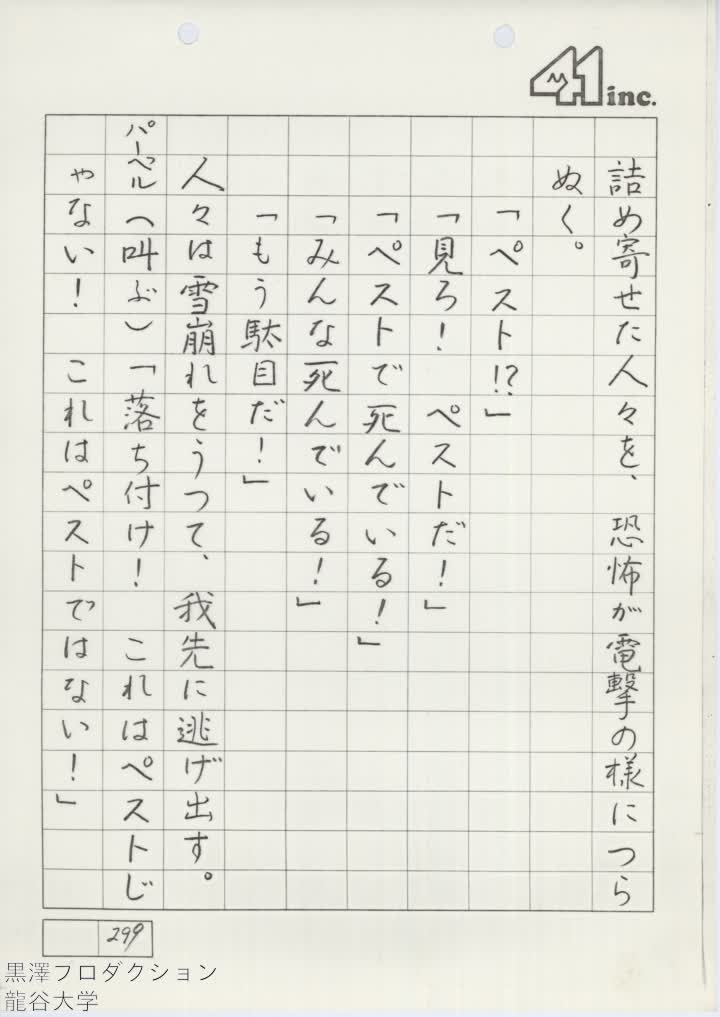 41 inc.
詰め寄せた人々を、恐怖が電撃の様につら
ぬく。
「ペスト!?」
「見ろ！　ペストだ！」
「ペストで死んでいる！」
「みんな死んでいる！」
「もう駄目だ！」
人々は雪崩れをうつて、我先に逃げ出す。
パーベル（叫ぶ）「落ち付け！　これはペストじ
ゃない！　これはペストではない！」
299
黒澤プロダクション
龍谷大学